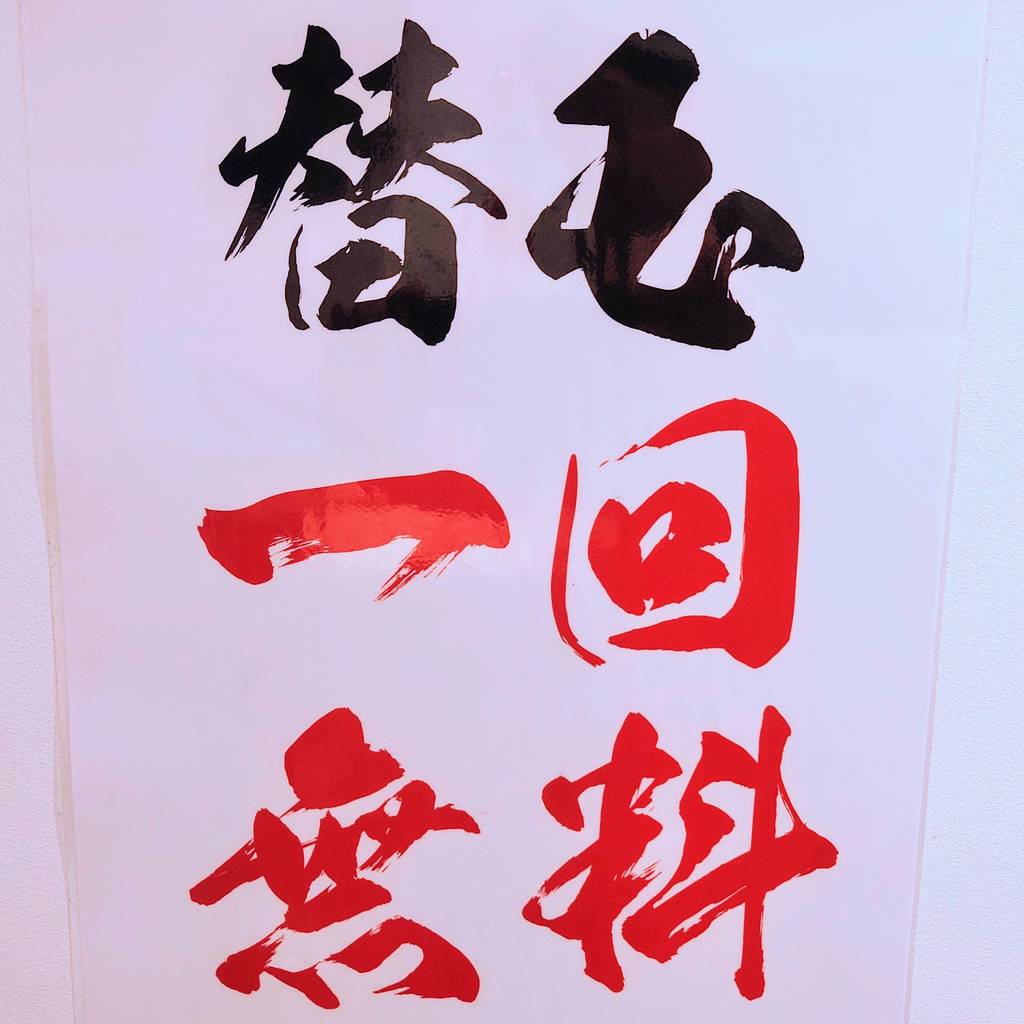 替玉
一回
無料